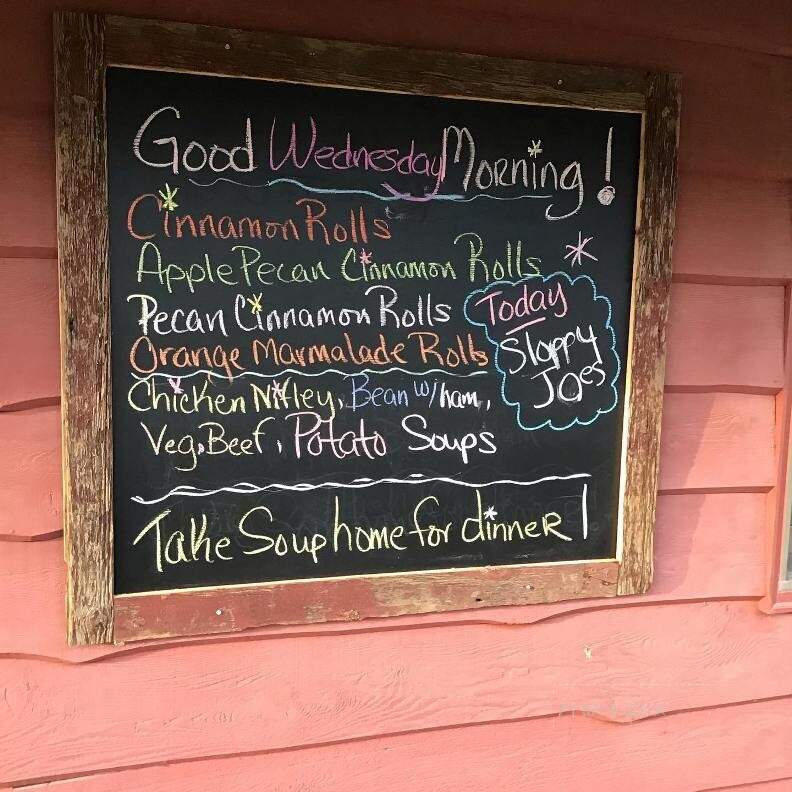 Good Wednesday Morning!
Cinnamon Rolls
Apple Pecan Cinnamon Rolls
Pecan Cinnamon Rolls
Orange Marmalade Rolls
Today
Sloppy
Joes
Chicken Nifley, Bean w/ ham,
Veg. Beef, Potato Soups
Take Soup home for dinner!